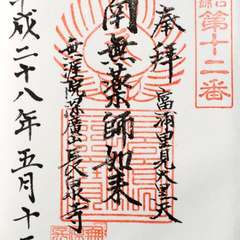 奉拝
富浦里見大黒天
南無薬師如来
無涯院萬廣山長泉寺
平成二十八年五月十
第十二番